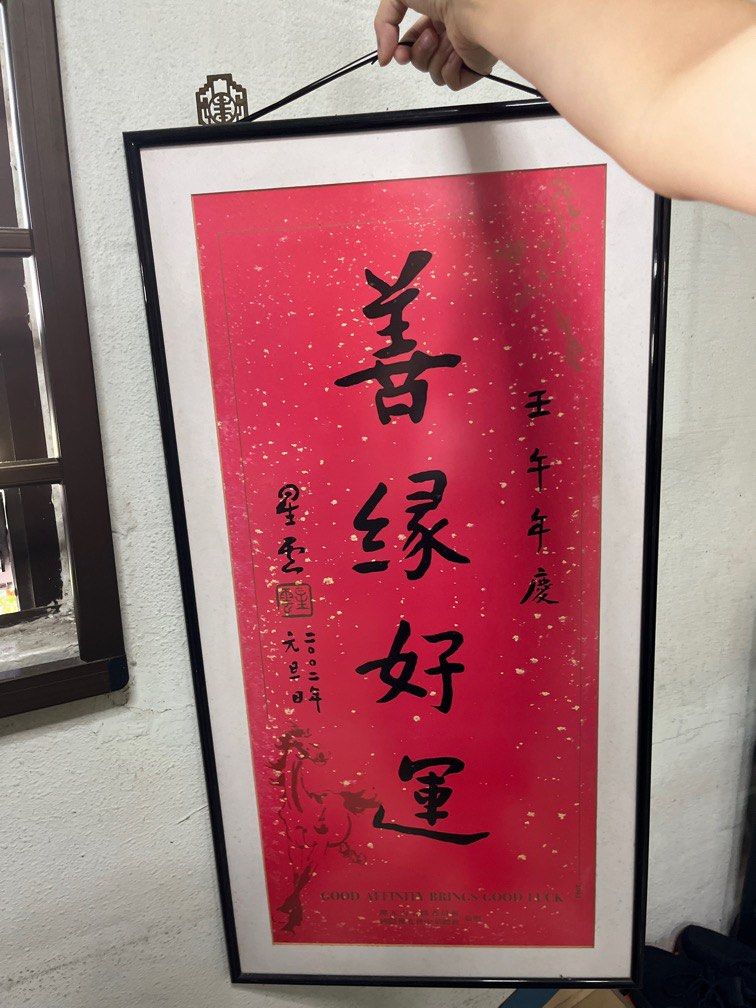 壬午年度
善緣好運
星雲
二〇〇二年
元旦日
GOOD AFFINITY BRINGS GOOD LUCK